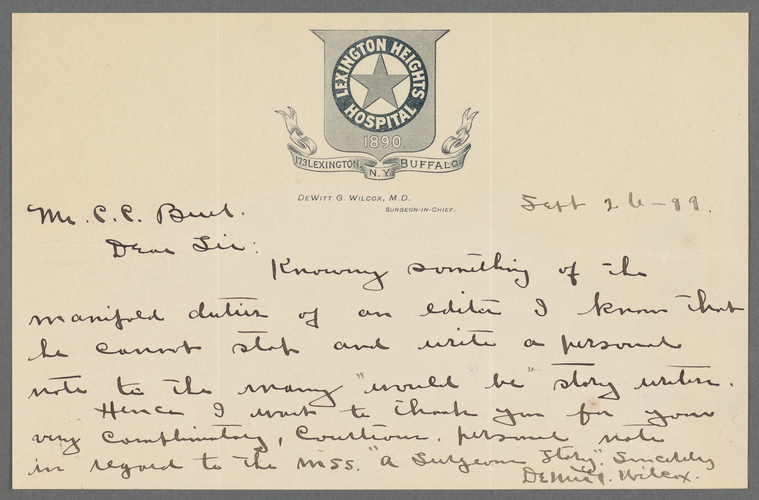 LEXINGTON HEIGHTS
HOSPITAL
1890.
173 LEXINGTON N.Y. BUFFALO
DEWITT G. WILCOX, M.D.
SURGEON-IN-CHIEF.
Sept 26-99.
Mr. C. C. Buel.
Dear Sir:
Knowing something of the
manifold duties of an editor I know that
he cannot stop and write a personal
note to the many "would be" story writers.
Hence I want to thank you for your
very complimentary, Courteous, personal note
in regard to the MSS. "A Surgeons Story". Sincerely
DeWitt G. Wilcox.